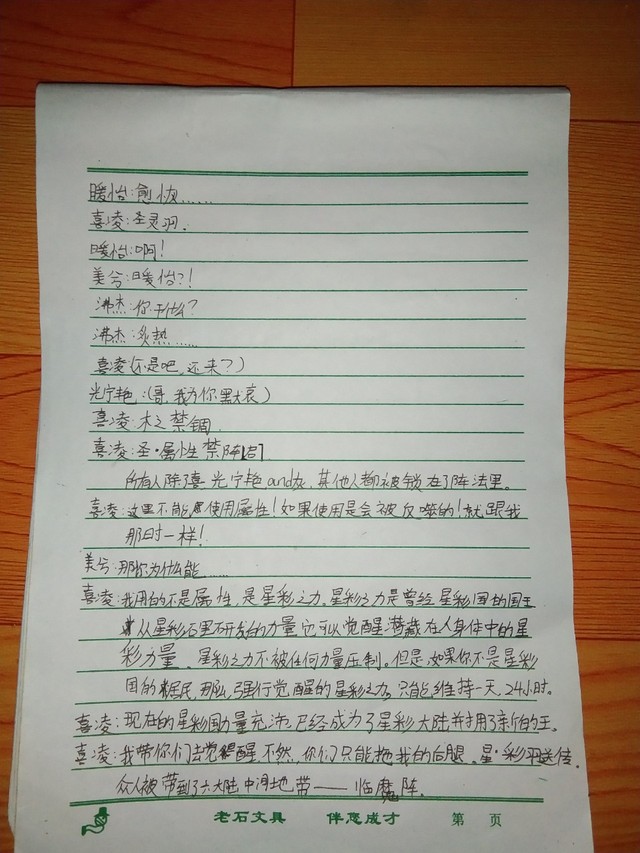 暖怡:愈恢……
喜凌:圣灵羽.
暖怡:啊!
美兮:暖怡?!
沸杰:你干什么?
沸杰:炙热……
喜凌(不是吧,还来?)
光宁艳:(哥,我为你默哀)
喜凌:木之禁锢.
喜凌:圣·属性禁阵[启].
所有人除了喜 光宁艳and灰,其他人都被锁在了阵法里。
喜凌:这里不能使用属性!如果使用是会被反噬的!就跟我
那时一样!
美兮:那你为什么能……
喜凌:我用的不是属性,是星彩之力.星彩之力是曾经星彩国的国王
从星彩石里研发的力量它可以觉醒潜藏在人身体中的星
彩力量.星彩之力不被任何力量压制。但是,如果你不是星彩
国的居民那么,强行觉醒的星彩之力,只能维持一天,24小时。
喜凌:现在的星彩国力量充沛,已经成为了星彩大陆并拥了新的王。
喜凌:我带你们去觉醒,不然,你们只能拖我的后腿。星·彩平送传.
众人被带到了六大陆中间地带——临魔阵.
老石文具 伴您成才 第 页